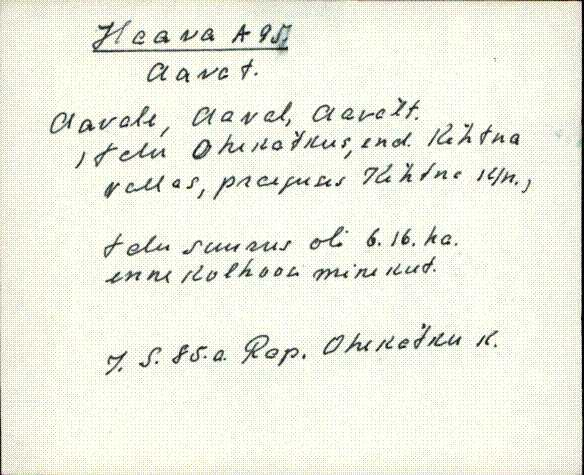 Haava A 95
Aavat.
Aavale, Aaval, Aavalt.
, talu Ohekatkus, end. Kehtna
vallas, praeguses Kehtna k/n.,
talu suurus oli 6.16. ha.
enne kolhoosi minekut.
J. S. 85.a. Rap. Ohekatku k.